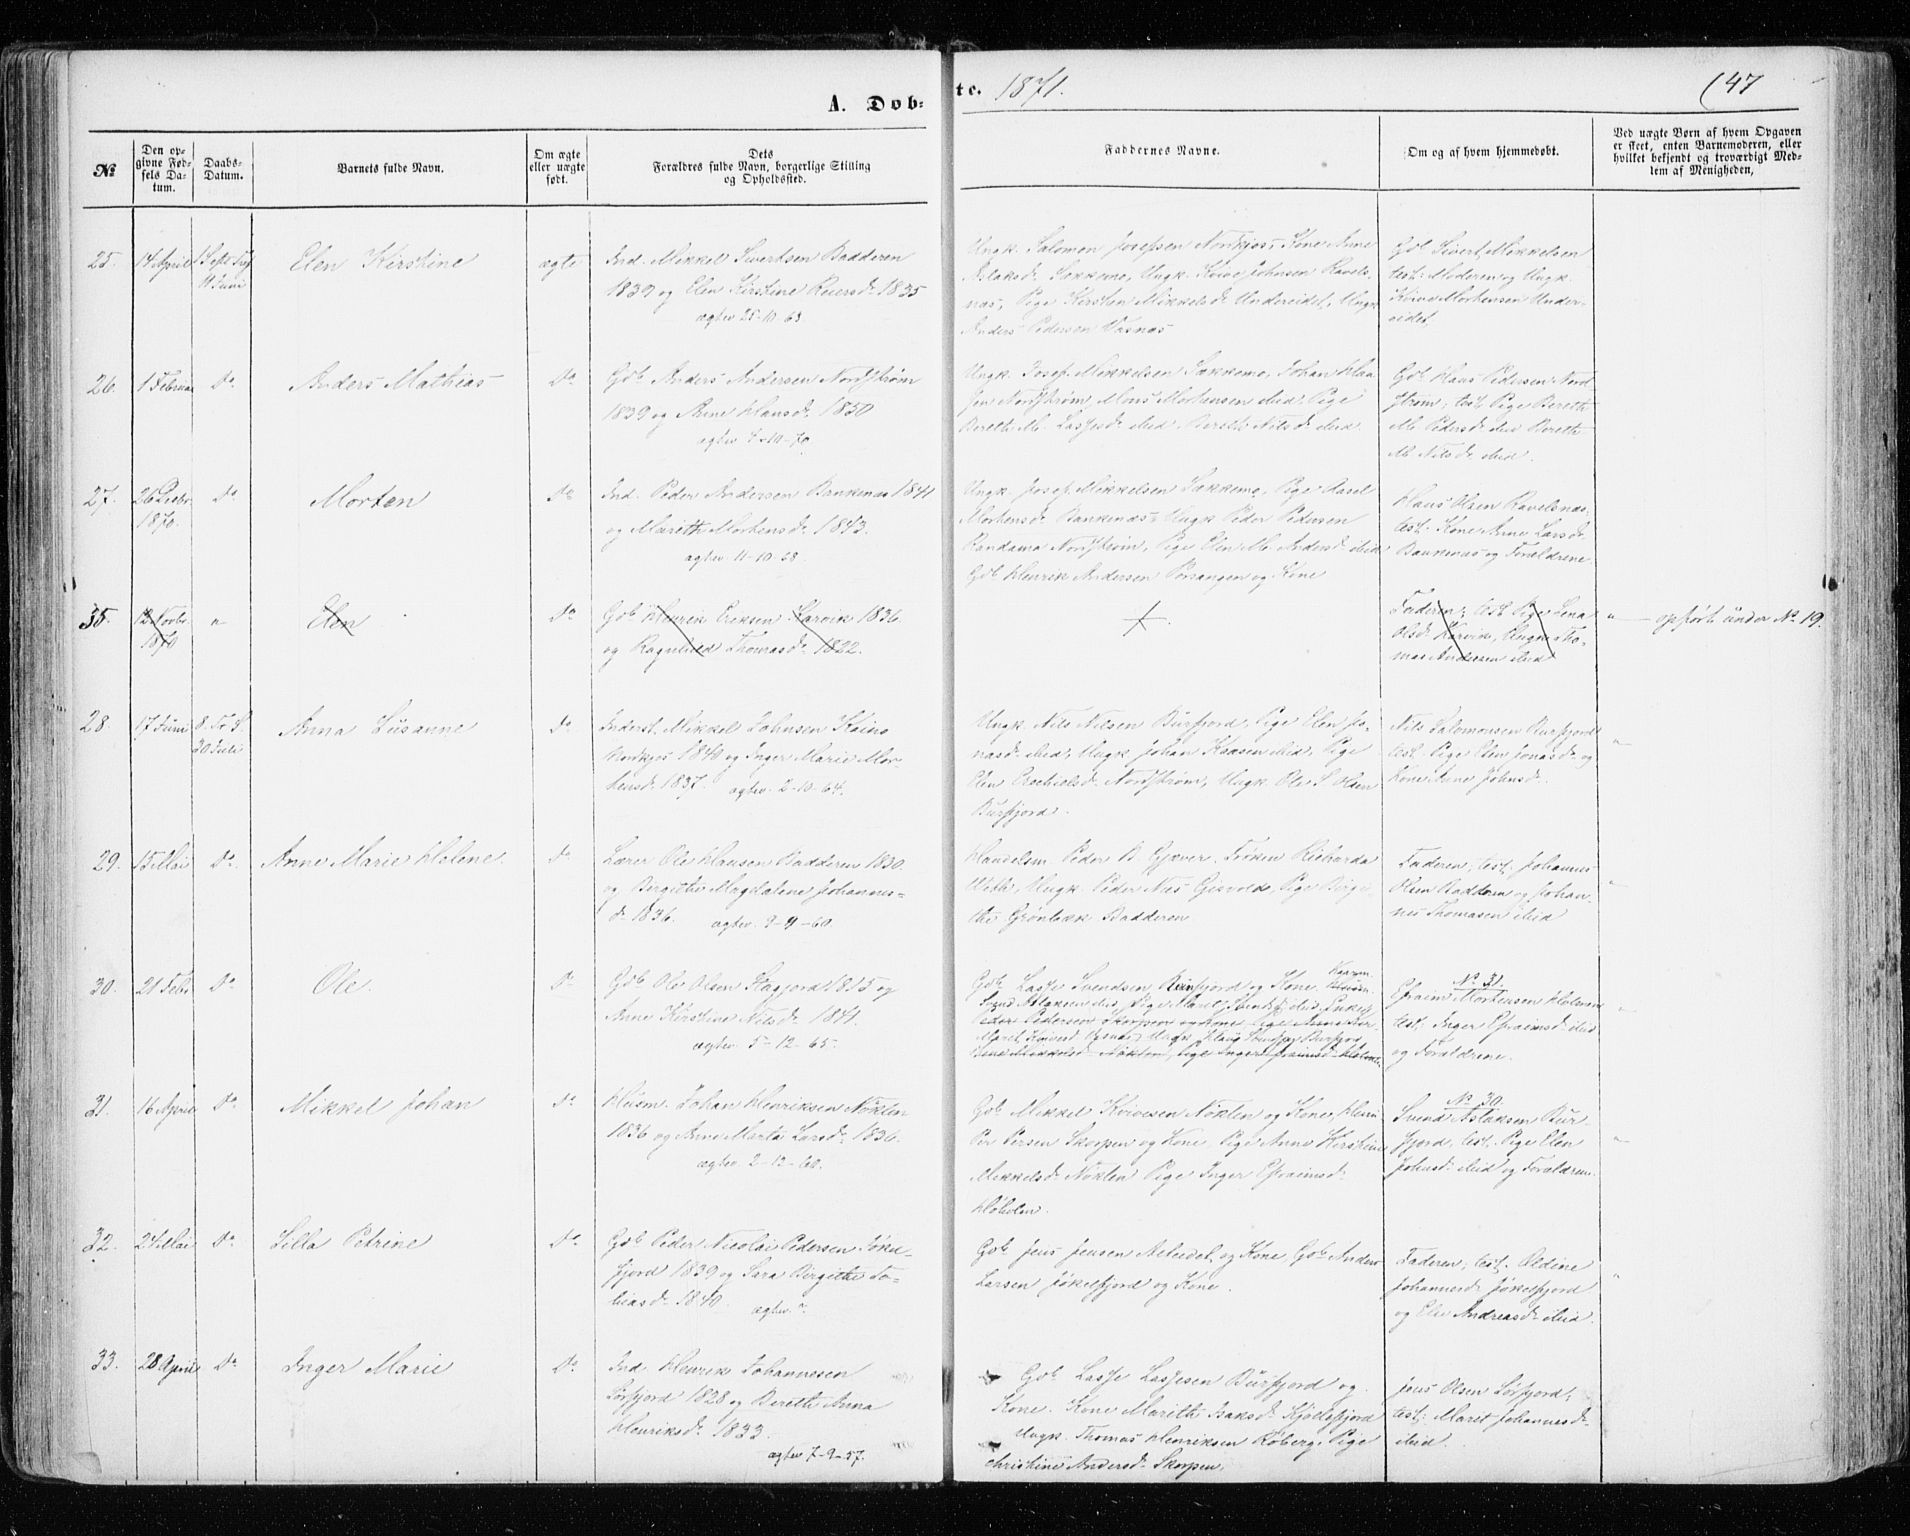 A. Døb-
te. 1871.
(47
№
Den op-
givne Fød-
sels Da-
tum.
Daabs-
Datum.
Barnets fulde Navn.
Om ægte
eller uægte
født.
Dets
Forældres fulde Navn, borgerlige Stilling
og Opholdsted.
Faddernes Navne.
Om og af hvem hjemmedøbt.
Ved uægte Børn af hvem Opgaven
er skeet, enten Barnemoderen, eller
hvilket bekjendt og troværdigt Med-
lem af Menigheden,
25.
14 April
11 Juni
Elen Kirstine
ægte
Ind. Mikkel Sivertsen Badderen
1839 og Elen Kirstine Reiersdr 1835
agtev 25-10-63.
Ungk. Salomon Josefsen Nordkjos, Kone Anne
Aslaksdr Sækkemo, Ungk. Koive Johnsen Ravels-
næs, Pige Kirsten Mikkelsdr Undereidet, Ungk
Anders Pedersen Vasnæs
Gdb Sivert Mikkelsen
test: Moderen og Ungk.
Koive Mortensen Under-
eidet
26.
1 Februar
Do.
Anders Mathias
Do
Gdb Anders Andersen Nordstrøm
1839 og Anne Hansdr 1850
agtev 4-10-70.
Ungk. Josef Mikkelsen Sækkemo, Johan Han-
sen Nordstrøm, Mons Mortensen ibid, Pige
Bereth M. Lassesdr ibid, Bereth Nilsdr ibid
Gdb Hans Pedersen Nord
strøm; test Pige Bereth
M. Pedersdr ibid Bereth
M Nilsdr ibid.
27.
26 Decbr
1870.
Do
Morten
Do
Ind. Peder Andersen Bankenæs 1841
og Mareth Mortensdr 1843.
agtev 11-10-68.
Ungk. Josef Mikkelsen Sækkemo, Pige Rasel
Mortensdr Bankenæs, Ungk Peder Pedersen
Randama Nordstrøm, Pige Elen M. Andersdr ibid
Gdb Henrik Andersen Porsangen og Kone
Hans Olsen Ravelsnæs,
test. Kone Anne Larsdr
Bankenæs og Forældrene
35.
12 Novbr
1870
"
Elen
Do
Gdb Henrik Eriksen Karvik 1836
og Ragnhild Thomasdr 1822.
Faderen; test Pige Lena
Olsdr Karvik, Ungk Tho-
mas Andersen ibid
" — opført under No 19.
28.
17 Juni
8. Tr S.
30 Juli
Anna Susanne
Do
Inderst. Mikkel Johnsen Kaino
Nordkjos 1840 og Inger Marie Mor-
tensdr 1837. agtev. 2-10-64.
Ungk. Nils Nilsen Burfjord, Pige Elen Jo-
nasdr ibid, Ungk Johan Klasen ibid, Pige
Elen Esechielsdr Nordstrøm, Ungk. Ole S. Olsen
Burfjord.
Nils Salomonsen Burfjord
test. Pige Elen Jonasdr og
Kone Anne Johnsdr.
"
29.
15 Mai
Do.
Anne Marie Helene.
Do.
Lærer Ole Hansen Badderen 1830.
og Birgithe Magdalene Johannes-
dr 1836. agtev. 9-9-60.
Handelsm. Peder B. Gjæver. Frøken Richarda
Weth, Ungk. Peder Nies Gjsvold, Pige Birgi-
the Grønbæk Badderen
Faderen; test. Johannes
Olsen Badderen og Johan-
nes Thomasen ibid
"
30.
21 Febr
Do
Ole
Do
Gdb Ole Olsen Stagjord 1815 og
Anne Kirstine Nilsdr 1841.
agtev 5-12-65.
Gdb Lasse Svendsen Burfjord og Kone
Svend Aslaksen ibid, Pige Maret
Peder Pedersen Skorpen og Kone Pige Anne Kir-
No 31.
Efraim Mortensen Holmen
test; Inger Efraimsdr ibid
og Forældrene.
"
31.
16 April
Do
Mikkel Johan
Do
Husm. Johan Henriksen Nøklen
1836 og Anne Marta Larsdr 1836.
agtev. 2-12-60.
Gdb Mikkel Koivesen Nøklen og Kone,
Per Persen Skorpen og Kone, Pige Anne Kirstine
Mikkelsdr Nøklen Pige Inger Efraimsdr
Holmen.
No 30
Svend Aslaksen Bur-
fjord, test. Pige Elen
Johnsdr ibid og Forældren.
"
32.
24 Mai
Do
Silla Petrine
Do
Gdb Peder Nicolai Pedersen Jøkel-
fjord 1839 og Sara Birgithe To-
biasdr 1840. agtev ?
Gdb Jens Jensen Alteidet og Kone Gdb Anders
Larsen Jøkelfjord og Kone.
Faderen; test. Oldine
Johannesdr Jøkelfjord
og Else Andreasdr ibid.
"
33.
28 April
Do
Inger Marie
Do
Ind Henrik Johannesen
Sørfjord 1828 og Bereth Anna
Henriksdr 1833.
agtev 7-9-57.
Gdb Lasse Lassesen Burfjord og
Kone. Kone Mareth Isaksdr Kjøllefjord
Ungk. Thomas Henriksen Røberg, Pige
Christine Andersdr Skorpen.
Jens Olsen Sørfjord;
test: Maret Johannesdr
ibid.